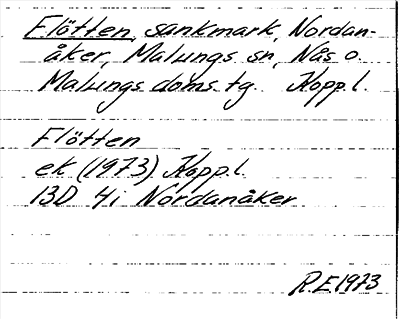 Flötten, sankmark, Nordan-
åker, Malungs sn, Nås o.
Malungs doms. tg. Kopp. l.
Flötten
ek (1973) Kopp. l.
13D 4i Nordanåker
R.E. 1973